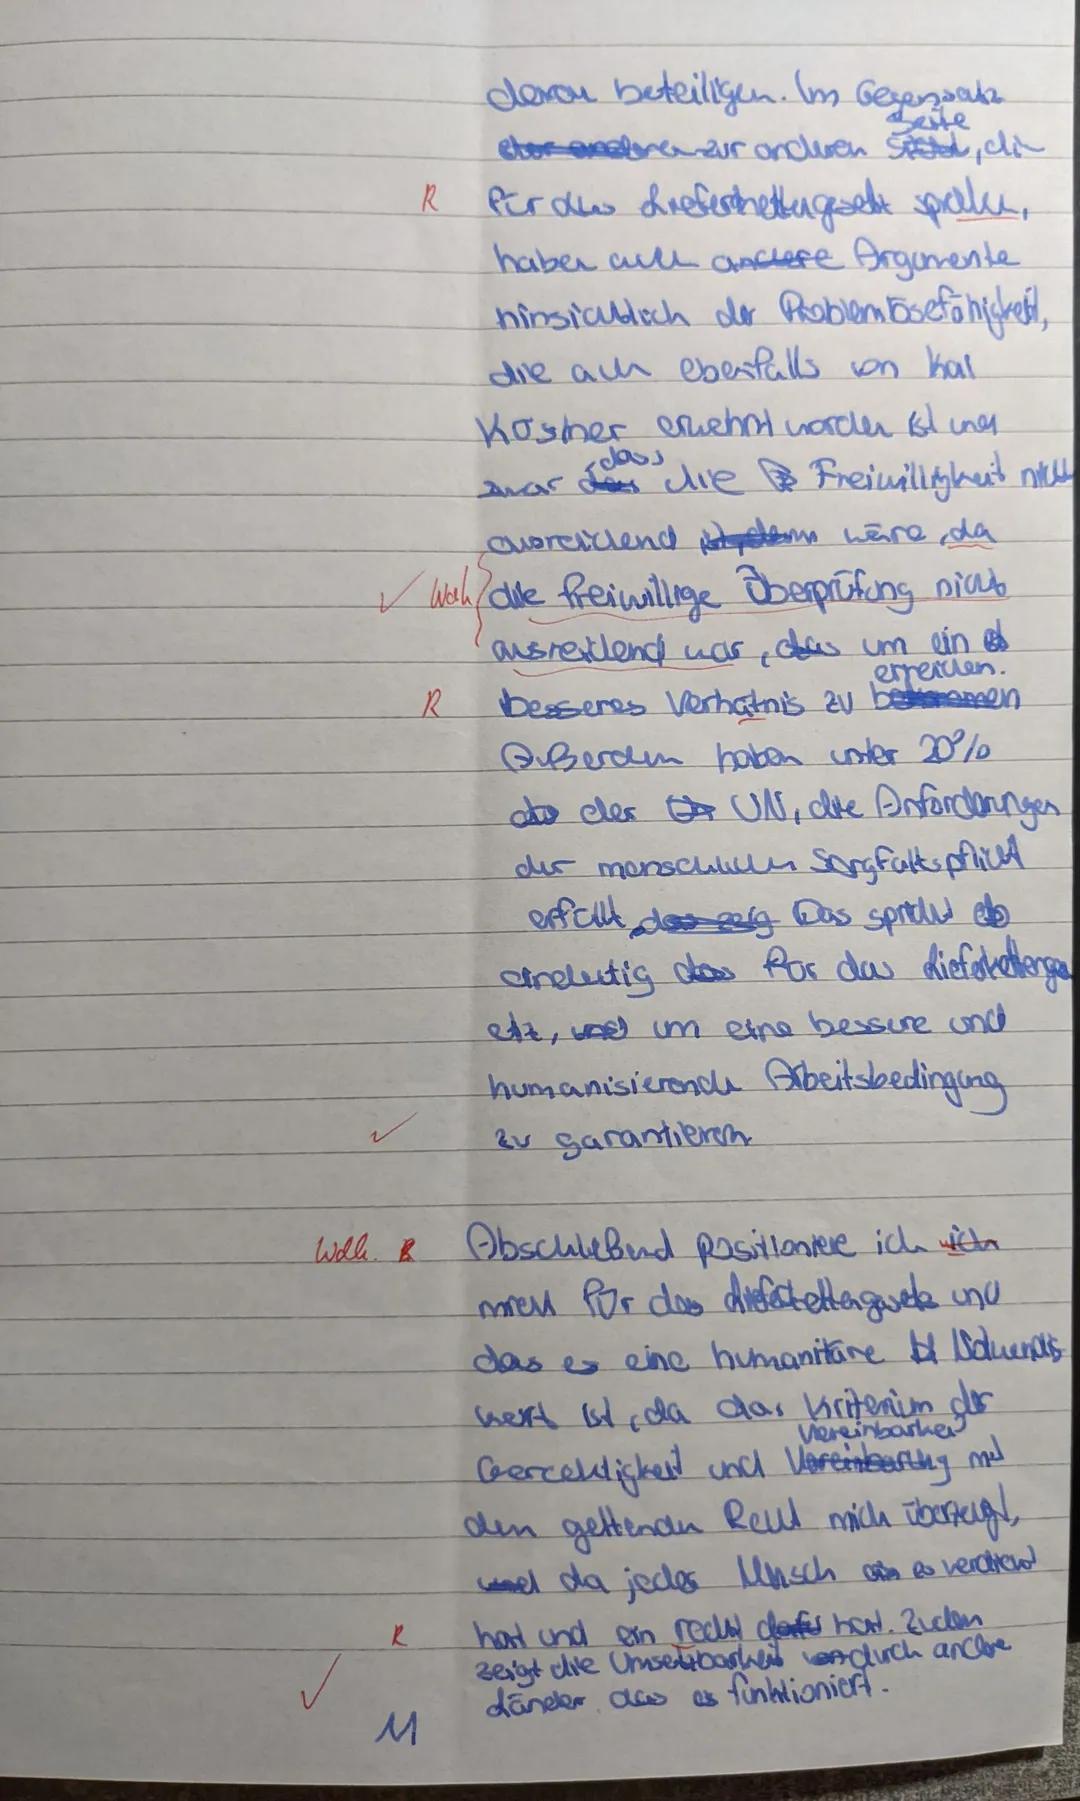 daran beteiligen. Im Gegensatz
zur anderen Seite, die
R für das Lieferkettengesetz sprechen,
haben auch andere Argumente
hinsichtlich der Problemlösefähigkeit,
die auch ebenfalls von Kai
erwehnt worden ist und
zwar dass die Freiwilligkeit nicht
ausreichend wäre, da
✓ Wdh die freiwillige Überprüfung nicht
ausreichend war, um ein
erreichen.
R besseres Verhätnis zu
Außerdem haben unter 20%
der UN, die Anforderungen
der menschlichen Sorgfaltspflicht
erfüllt Das spricht
eindeutig für das Lieferkettenges
etz, um eine bessere und
humanisierende Arbeitsbedingung
✓ zu garantieren
Wdh. R Abschließend positioniere ich ich
mich für das Lieferkettengesetz und
das es eine humanitäre
wert ist, da das Kriterium der
Vereinbarkeit
Gerechtigkeit und mit
den geltenden Recht mich überzeugt,
da jeder Mensch es verdient
R hat und ein recht hat. Zudem
zeigt die Umsetzbarkeit durch andere
✓ Länder das es funktioniert.
M